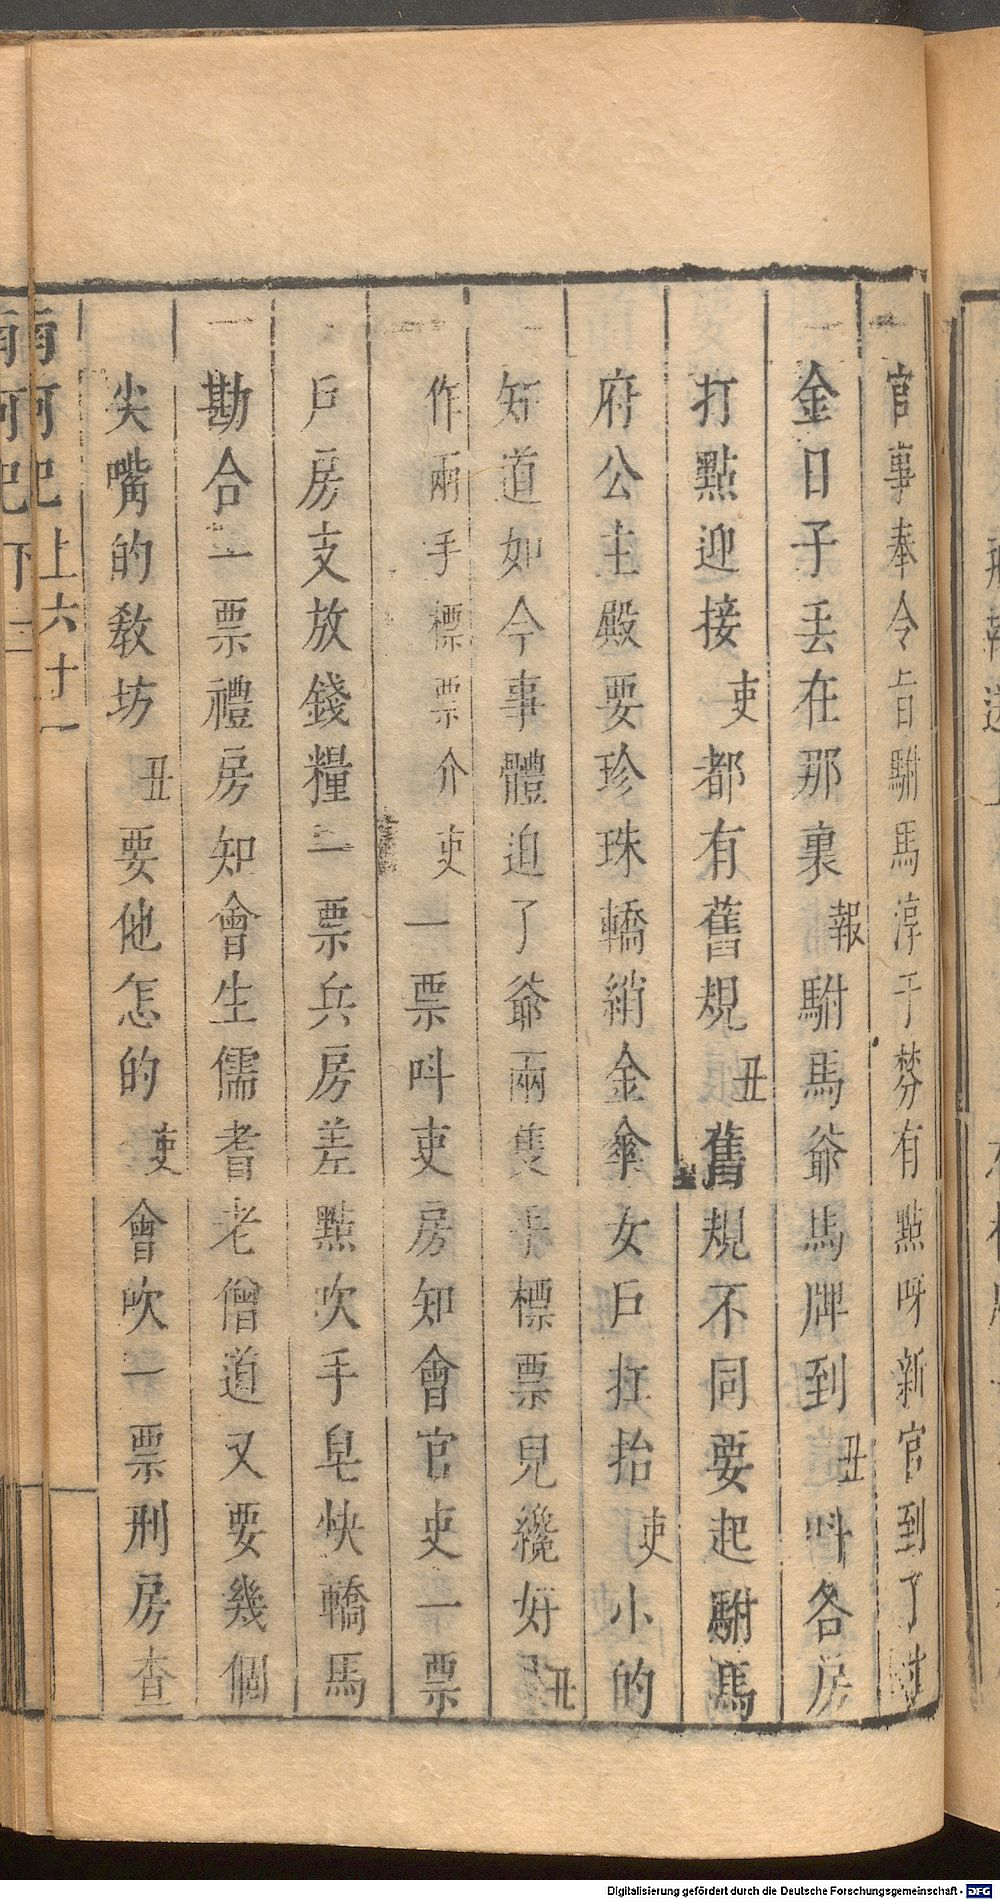 官事奉令旨駙馬淳于棼有點呀新官到了時
金日子丢在那裏報駙馬爺馬牌到丑呌各房
打點迎接吏都有舊規丑舊規不同要起駙馬
府公主殿要珍珠轎銷金傘女戶扛抬吏小的
知道如今事體迫了爺兩隻手標票兒纔好丑
作兩手標票介吏一票呌吏房知會官吏一票
戶房支放錢糧一票兵房差點吹手皂快轎馬
勘合一票禮房知會生儒耆老僧道又要幾個
尖嘴的敎坊丑要他怎的吏會吹一票刑房查
南柯記 上 六十一
南柯記 下
Digitalisierung gefördert durch die Deutsche Forschungsgemeinschaft - DFG